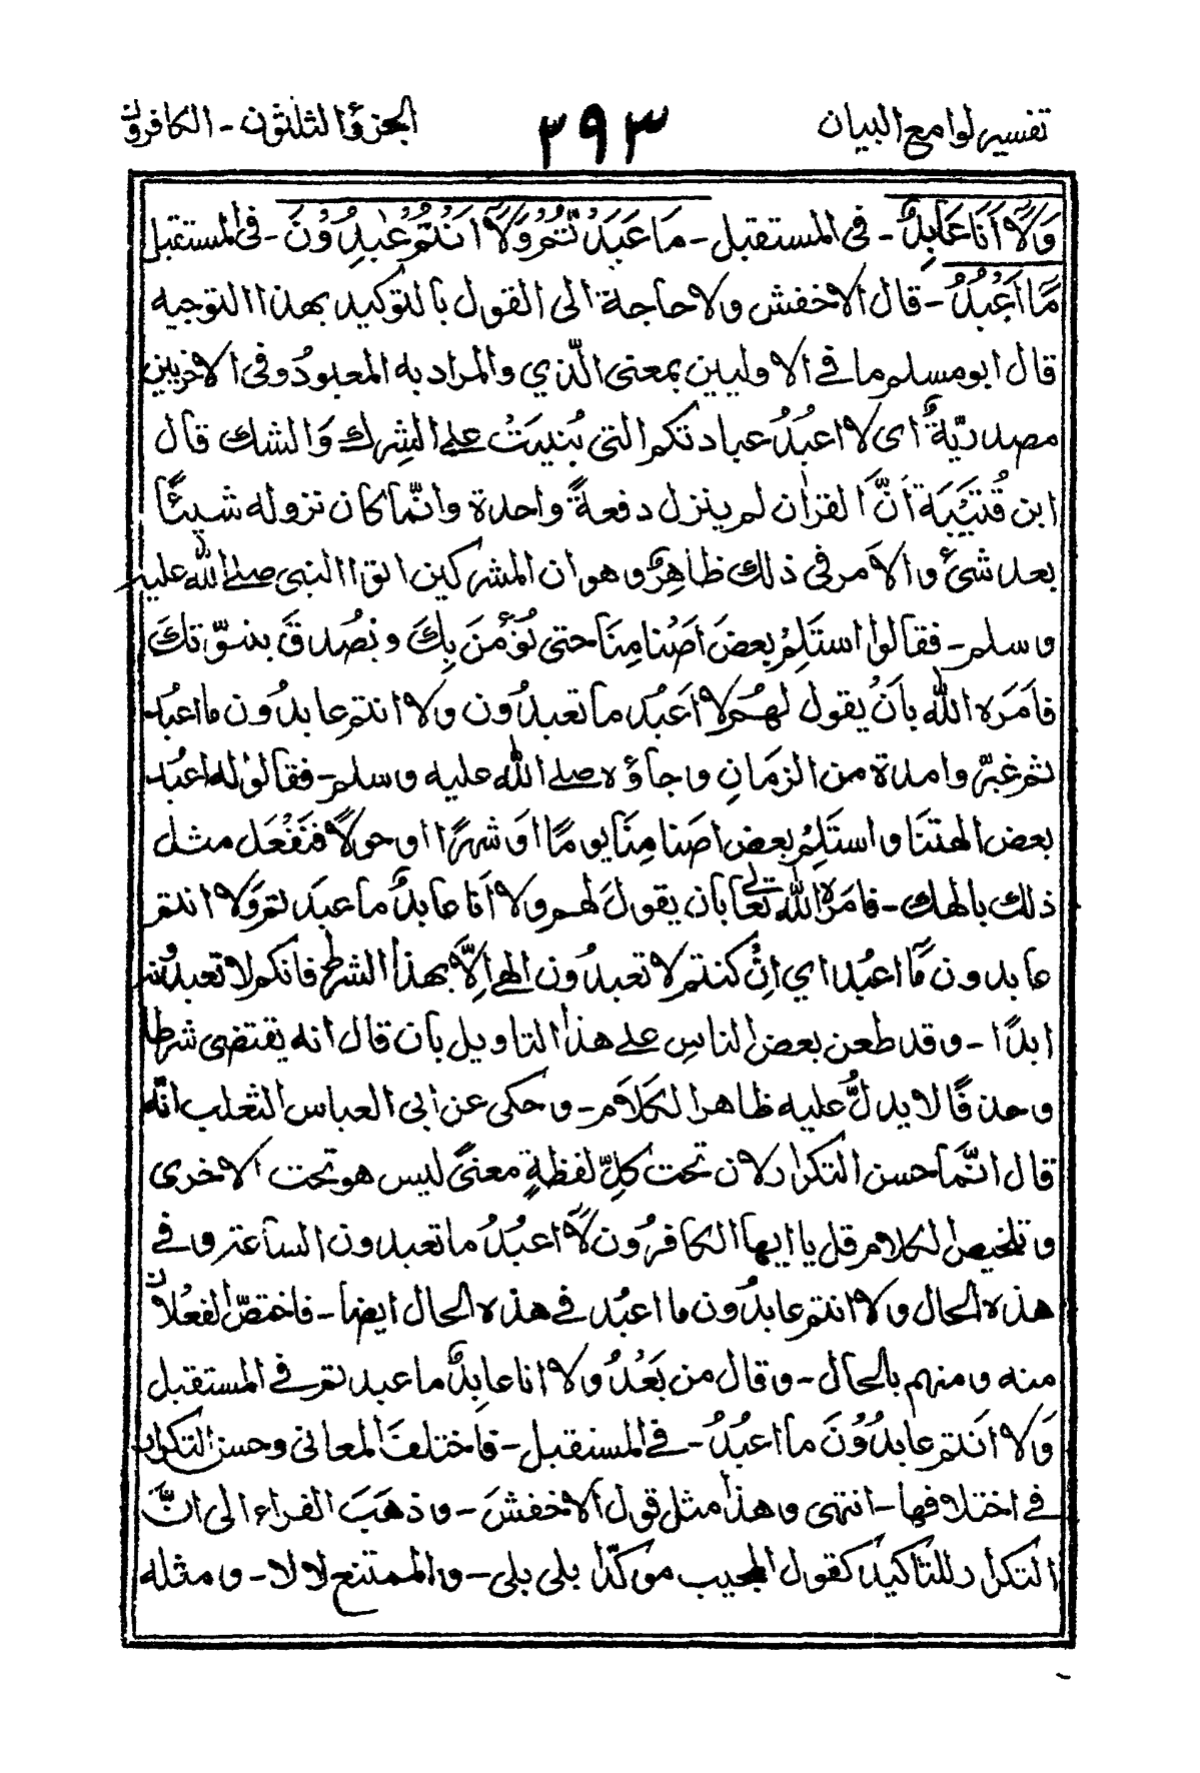 تفسير لوامع البيان ٣٩٣ الجزؤ الثلثون - الكافرون
وَلَآ اَنَا عَابِدٌ - فى المستقبل - مَا عَبَدْتُّمْ وَلَآ اَنْتُمْ عٰبِدُوْنَ - فى المستقبل
مَآ اَعْبُدُ - قال الاخفش ولا حاجة الى القول بالتوكيد بهذا التوجيه
قال ابو مسلم ما فے الاوليين بمعنى الّذي والمراد به المعبودُ وفى الاخريين
مصدريّةٌ اى لا اعبُدُ عبادتكم التى بُنِيَتْ علے الشِرك وَالشك قال
ابن قُتَيْبَة اَنَّ القراٰن لم ينزل دفعةً واحدة وانّما كان نزوله شيئًا
بعد شئ والاَمر فى ذلك ظاهِرٌ وهو ان المشركين اتوا النبى صلے الله عليه
وسلم - فقالوا استَلِمْ بعضَ اَصْنامِنَا حتى نُؤمنَ بِكَ ونصُدقَ بنبوّتكَ
فاَمَرَه الله بِاَنْ يقول لهُم لا اَعبُد ما تعبدُون ولا انتم عابدُون ما اعبُد
ثم غبرّ وا مدة من الزمَانِ وجاؤه صلے الله عليه وسلم - فقالوا له اعبُد
بعض الهتنَا واستَلِمْ بعض اصَنامِنَا يومًا اوَ شهرًا او حولًا فنَفْعَل مثل
ذلك بالهك - فامَرَهُ الله تعالٰى بان يقولَ لَهم ولا اَنا عابدٌ ما عبَدتم وَلا انتم
عابدون مَآ اعبُد اي اِنْ كنتم لا تعبدُون الٰهي اِلّا بهذا الشرط فانكم لا تعبدُونه
ابدًا - وقد طعن بعض الناسِ علے هذا التاويل بان قال انه يقتضى شرطا
وحذفًا لا يدلُّ عليه ظاهر الكَلاَم - وحكى عن ابى العباس الثعلب انّه
قال انّمَا حسن التكرار لان تحت كلِّ لفظةٍ معنىً ليس هو تحت الاخرى
وتلخيص الكلام قل يا ايها الكافرُون لآ اعبُدُ ما تعبدون الساعة وفے
هذه الحال ولا انتم عابدُون ما اعبُد فے هذه الحال ايضا - فاختصّ الفعلان
منه ومنهم بالحال - وقال من بَعْدُ ولا انا عابِدٌ ما عبدتم فے المستقبل
وَلا انَتم عابدُوْنَ ما اعبُدُ - فے المستقبل - فاختلفَ المعانى وحسن التكرار
فے اختلافها - انتهى وهذا مثل قول الاخفشَ - وذهَبَ الفراء الى انَّ
التكرار للتاكيد كقول المجيب موكّدا بلى بلى - والممتنع لا لا - ومثله